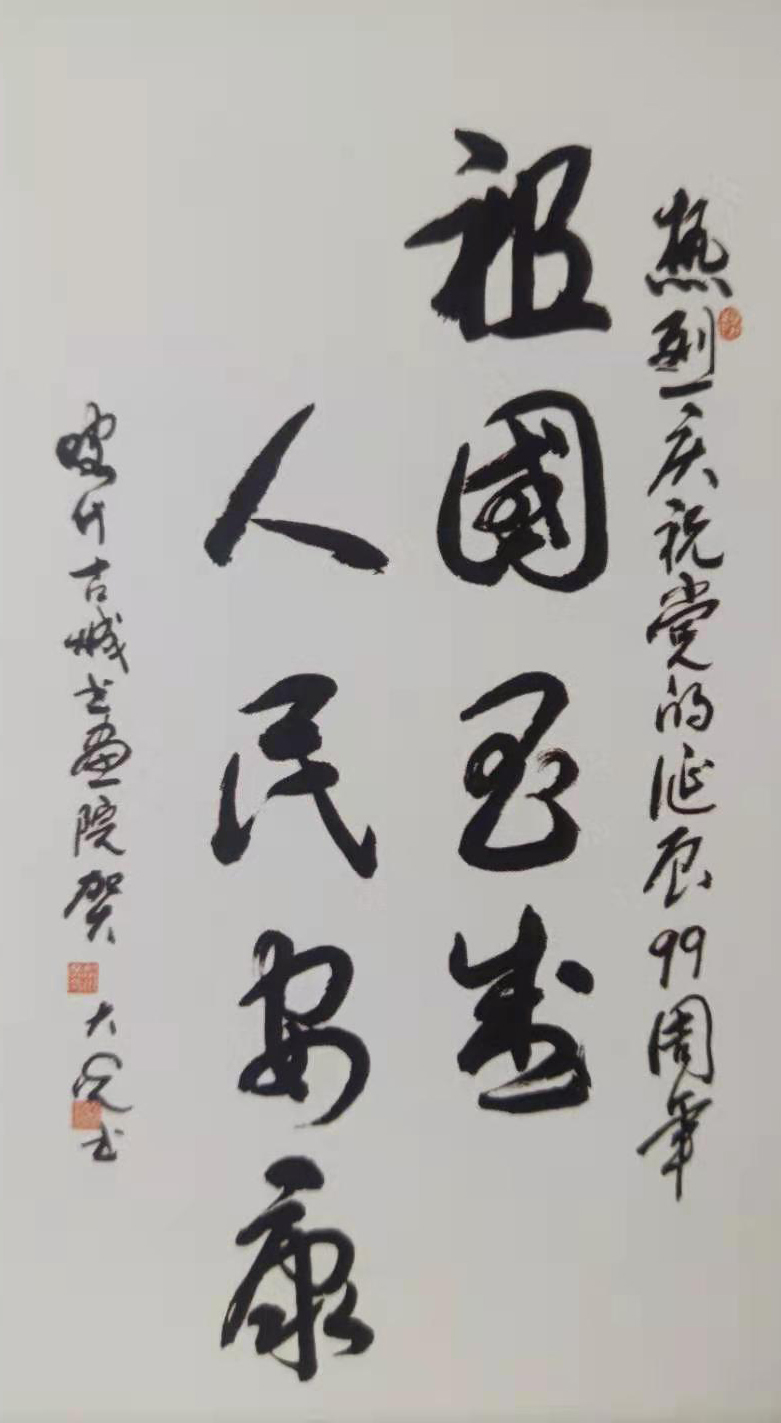 热烈庆祝党的诞辰99周年
祖國昌盛
人民安康
古城书畫院贺
大 书